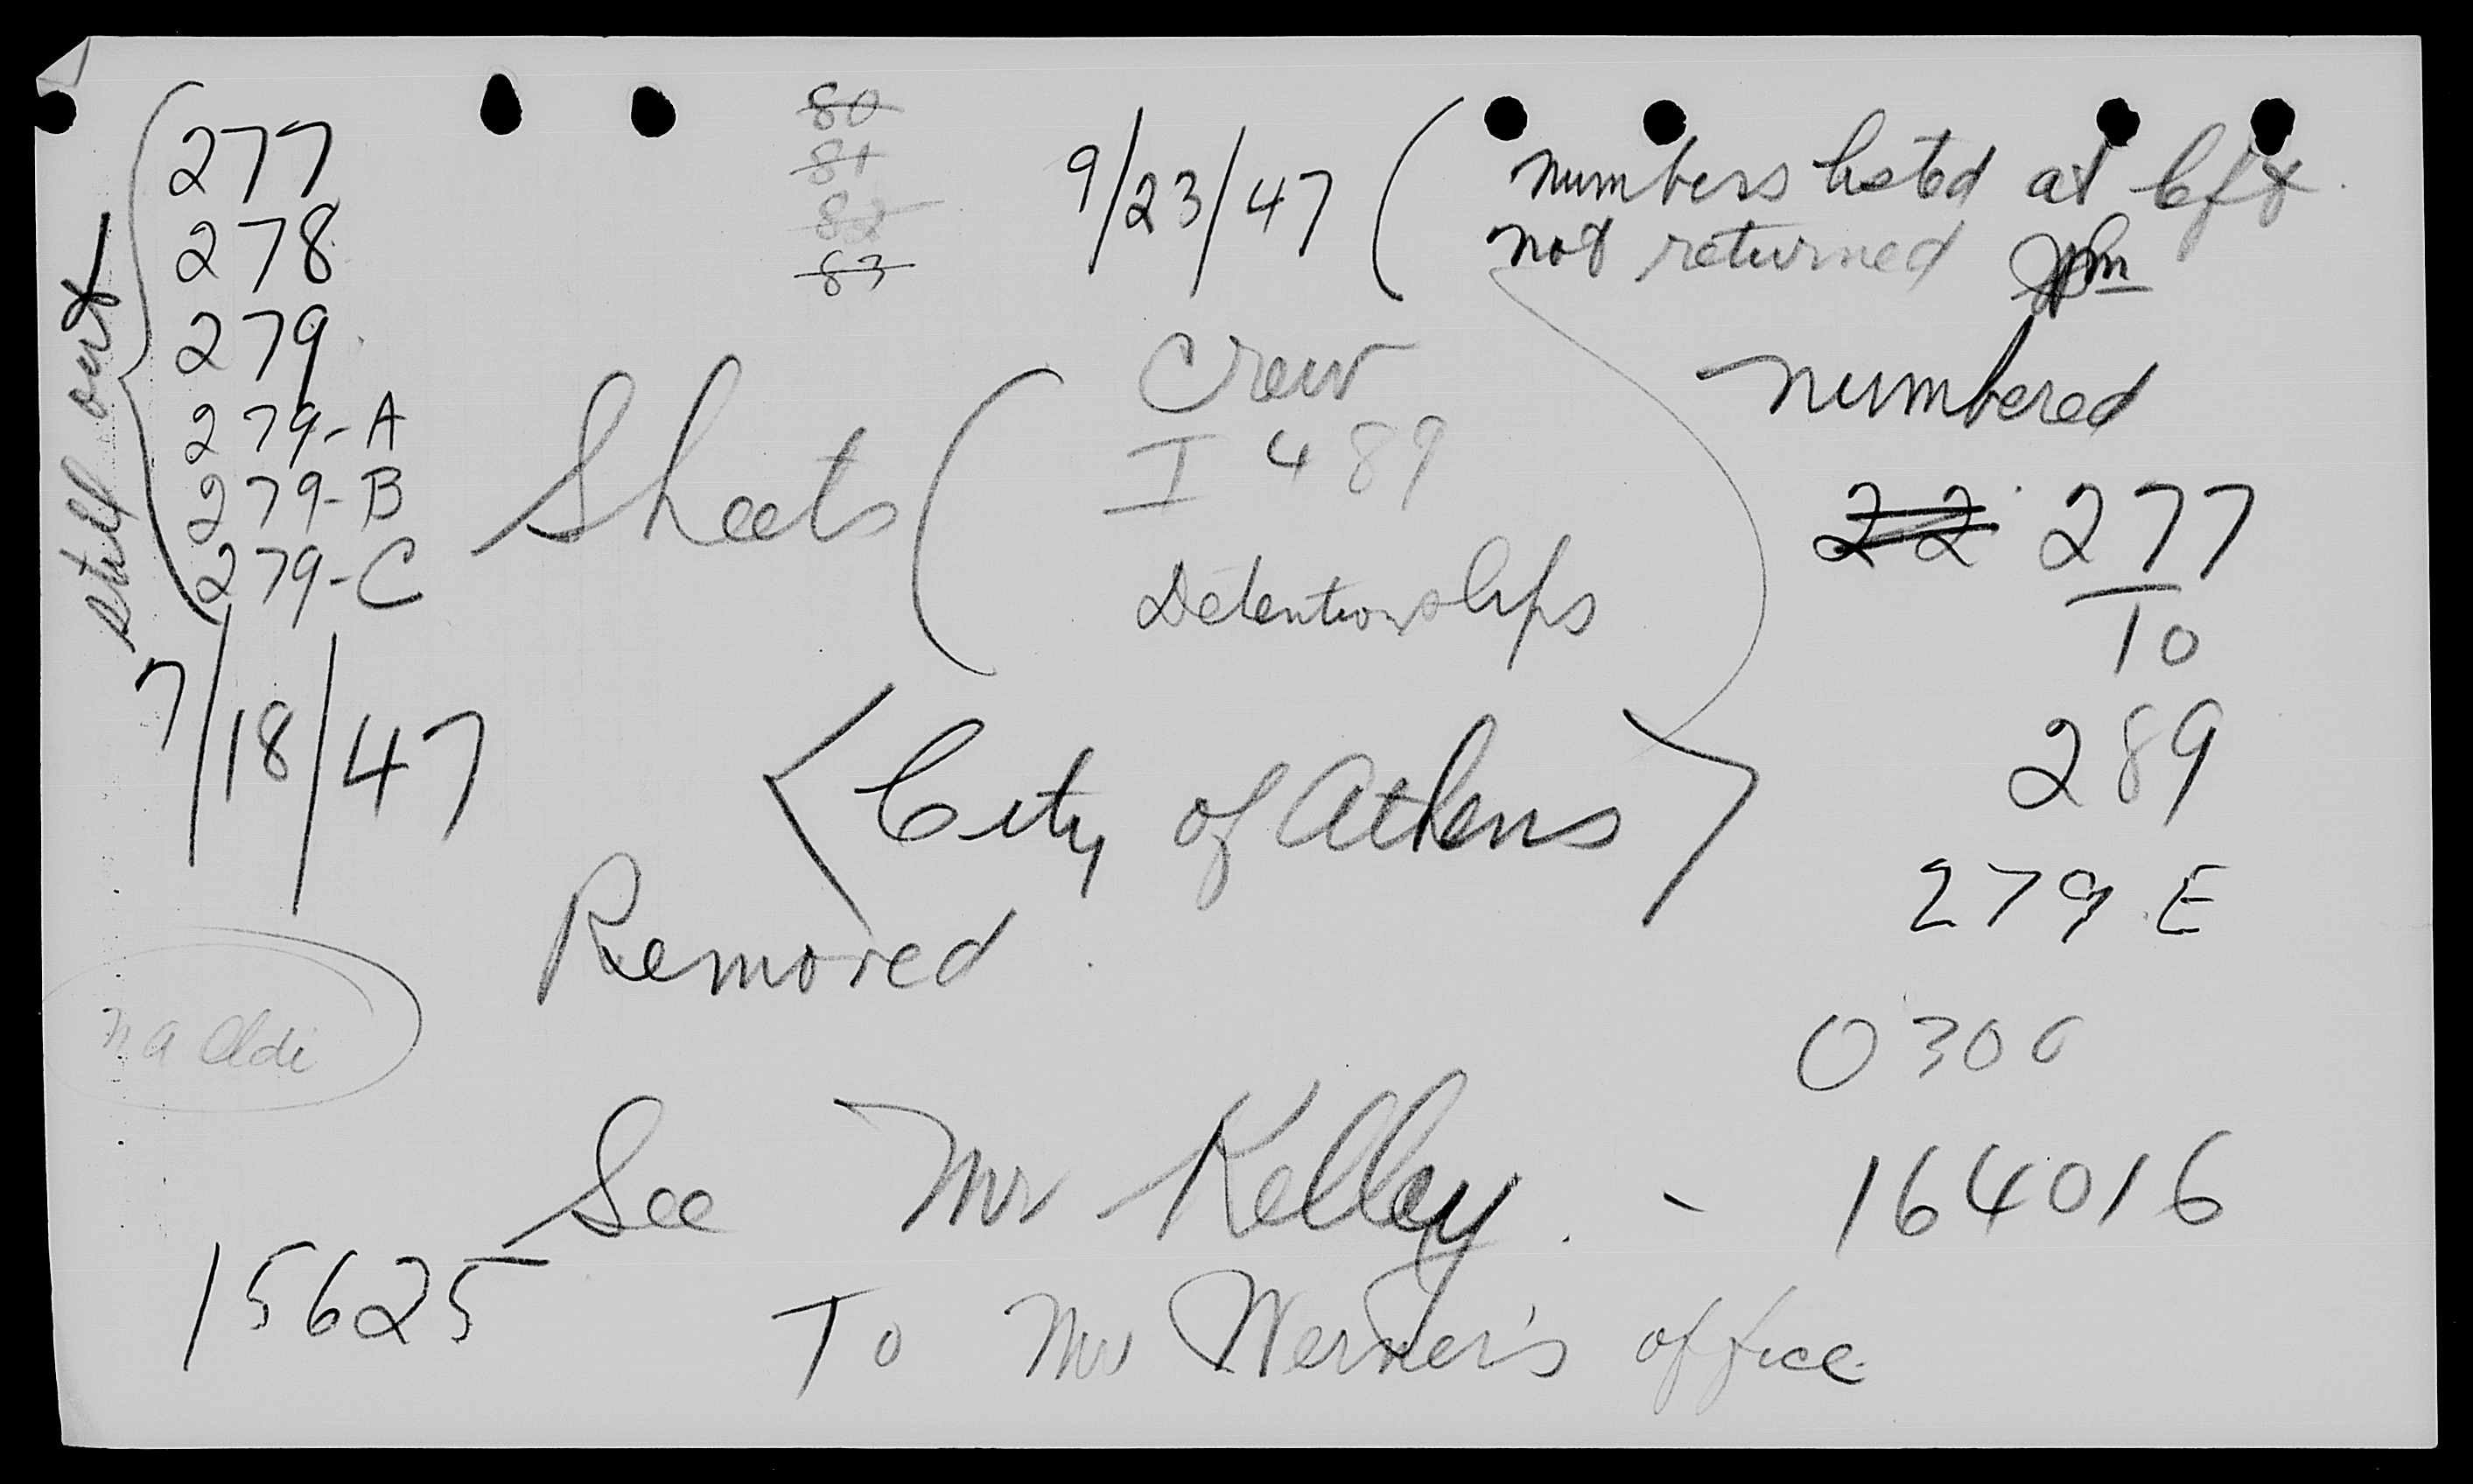 still out
277
278
279
279-A
279-B
279-C
80
81
82
83
9/23/47
numbers listed at left
not returned
Sheets
Crew
I 489
Detention slips
numbered
22 277
To
289
279 E
0300
7/18/47
City of Athens
Removed
See Mr Kelley. - 164016
15625
To Mr Werner's office